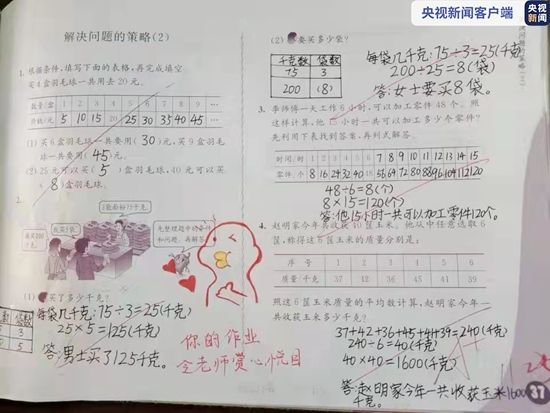 央视新闻客户端
解决问题的策略(2)
1. 根据条件,填写下面的表格,再完成填空。
买4盒羽毛球一共用去20元。
数量/盒 1 2 3 4 5 6 7 8 9 …
价钱/元 5 10 15 20 25 30 35 40 45 …
(1) 买6盒羽毛球一共要用(30)元,买9盒羽毛
球一共要用(45)元。
(2) 25元可以买(5)盒羽毛球,40元可以买
(8)盒羽毛球。
2.
3袋面粉75千克。
我买5袋。
我买200千克。
先整理题中的条件
和问题,再解答。
(1) 买了多少千克?
袋数
3
5
每袋几千克:75÷3=25(千克)
25×5=125(千克)
答:男士买了125千克。
你的作业
令老师赏心悦目
(2) 要买多少袋?
千克数 袋数
75 3
200 (8)
每袋几千克:75÷3=25(千克)
200÷25=8(袋)
答:女士要买8袋。
3. 李师傅一天工作6小时,可以加工零件48个。照
这样计算,他15小时一共可以加工多少个零件?
先利用下表找到答案,再列式解答。
时间/时 1 2 3 4 5 6 7 8 9 10 11 12 13 14 15
零件/个 8 16 24 32 40 48 56 64 72 80 88 96 104 112 120
48÷6=8(个)
8×15=120(个)
答:他15小时一共可以加工零件120个。
4. 赵明家今年共收获40筐玉米。他从中任意选取6
筐,称得这6筐玉米的质量分别是:
序号 1 2 3 4 5 6
质量/千克 37 42 36 45 41 39
照这6筐玉米质量的平均数计算,赵明家今年一
共收获玉米多少千克?
37+42+36+45+41+39=240(千克)
240÷6=40(千克)
40×40=1600(千克)
答:赵明家今年一共收获玉米1600
千克。
37